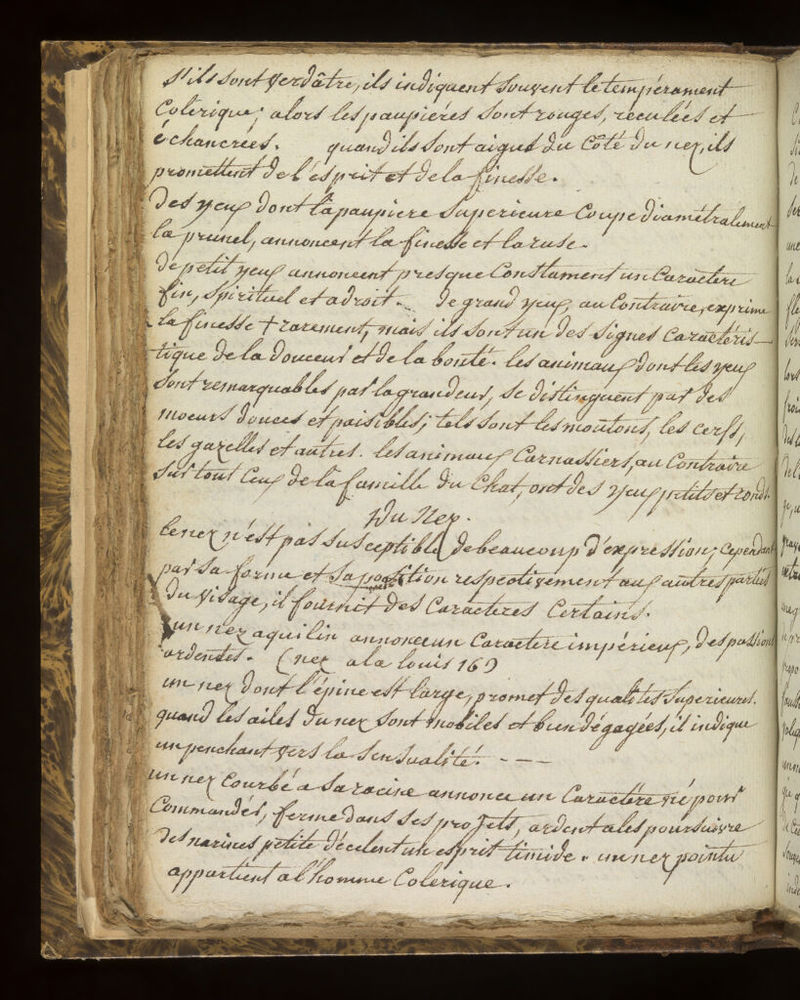 s'ils sont verdâtre, ils indiquent souvent le tempérament
Colerique; alors les paupiéres sont rouges, reculées et
échancrées. quand ils sont aigus du Côté du nez, ils
promettent de l'ésprit et de la finesse.
Des yeux dont la paupiere superieure Coupe diamétralement
la prunel, annoncent la finesse et la ruse.
De petit yeux annoncent presque Constament un Caractere
fin, spirituel et adroit. de grand yeux, au Contraire, exprime
la finesse + rarement, mais ils sont un des signes Caractéris-
tique de la douceur et de la bonté. les animaux dont les yeux
sont remarquables par la grandeur, se distinguent par des
moeurs douces et paisibles; tels sont les moutons, les cerfs,
les gazelles et autres. les animaux Carnassiers, au Contraire
sur tout Ceux de la famille du Chat, ont des yeux petits et ronds.
Du Nez.
le nez n'est pas susceptible de beaucoup d'expression; cependant
par sa forme et sa position respectivement aux autres parties
du visage, il fournit des Caracteres Certains.
un nez aquilin annonce un Caractere impérieux, des passions
ardentes. (nez a la louis 16)
un nez dont l'épine est large, promet des qualités superieures.
quand les ailes du nez sont mobiles et bien dégagées, il indique
un penchant vers la sensualité. - - -
un nez Courbé a sa racine annonce un Caractére né pour
Commander, ferme dans ses projets, ardent a les poursuivre
des narines petite décelent un esprit timide. un nez pointu
appartient a l'homme Colerique.